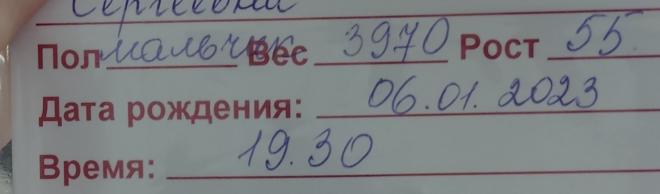 Сергеевны
Пол мальчик Вес 3970 Рост 55
Дата рождения: 06.01.2023
Время: 19.30